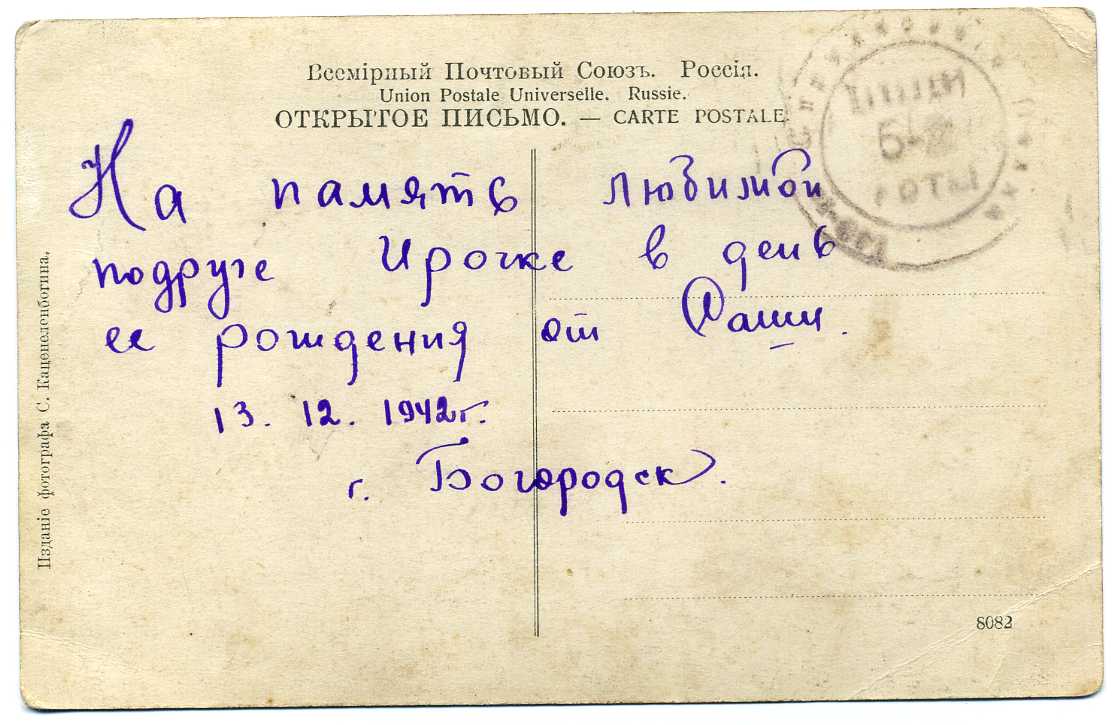 Всемірный Почтовый Союзъ. Россія.
Union Postale Universelle. Russie.
ОТКРЫТОЕ ПИСЬМО. — CARTE POSTALE.
На память любимой
подруге Ирочке в день
ее рождения от Раши.
13. 12. 1942г.
г. Богородск.
Изданіе фотографа С. Каценеленбогина.
РОТЫ
8082